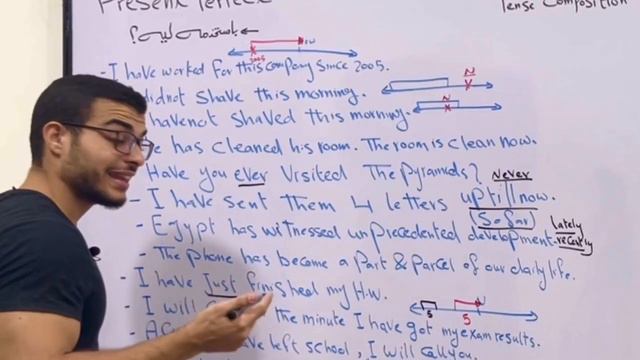 Present Perfect
Tense Composition
باستخدمه ليه؟
2005
- I have worked for this company since 2005.
N
didnot shave this morning.
N
havenot shaved this morning.
has cleaned his room. The room is clean now.
Have you ever visited The pyramids? Never
- I have sent them 4 letters up till now.
So far
- Egypt has witnessed unprecedented development. lately
recently
- The phone has become a part & parcel of our daily life.
- I have Just finished my H.w.
- I will the minute I have got my exam results.
5 5
left school, I will call you.